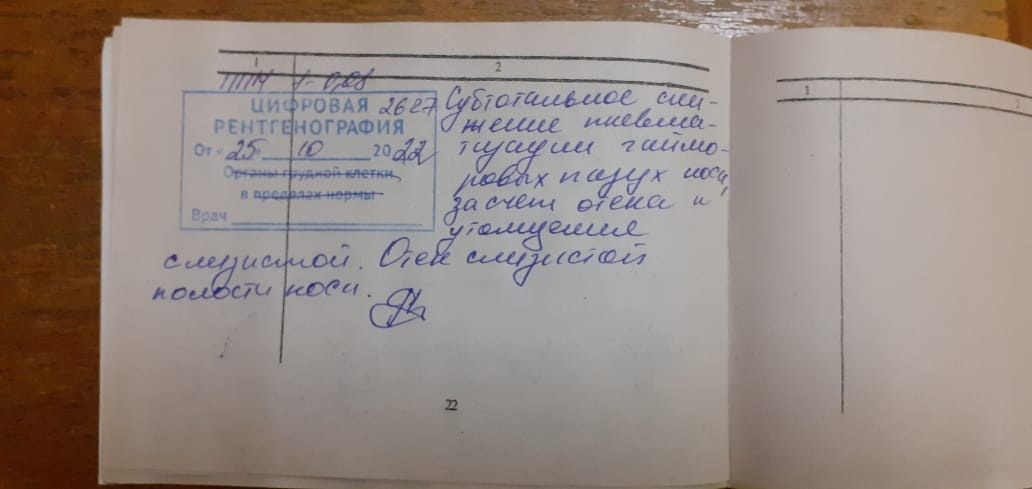 1 2
ППН 1-0,08
ЦИФРОВАЯ 2627
РЕНТГЕНОГРАФИЯ
От «25» 10 2022
Органы грудной клетки
в пределах нормы
Врач
Субтотальное сни-
жение пневма-
тизации гаймо-
ровых пазух носа,
за счет отека и
утолщения
слизистой. Отек слизистой
полости носа.
22
1